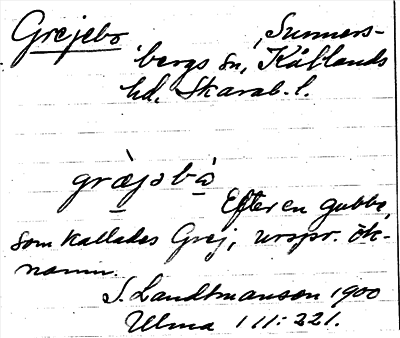 Grejebo Sunners-
bergs sn, Kållands
hd. Skarab. l.
græjəbo
Efter en gubbe,
som kallades Grej, urspr. ök-
namn.
S. Landtmanson 1900
Ulma 111:221.